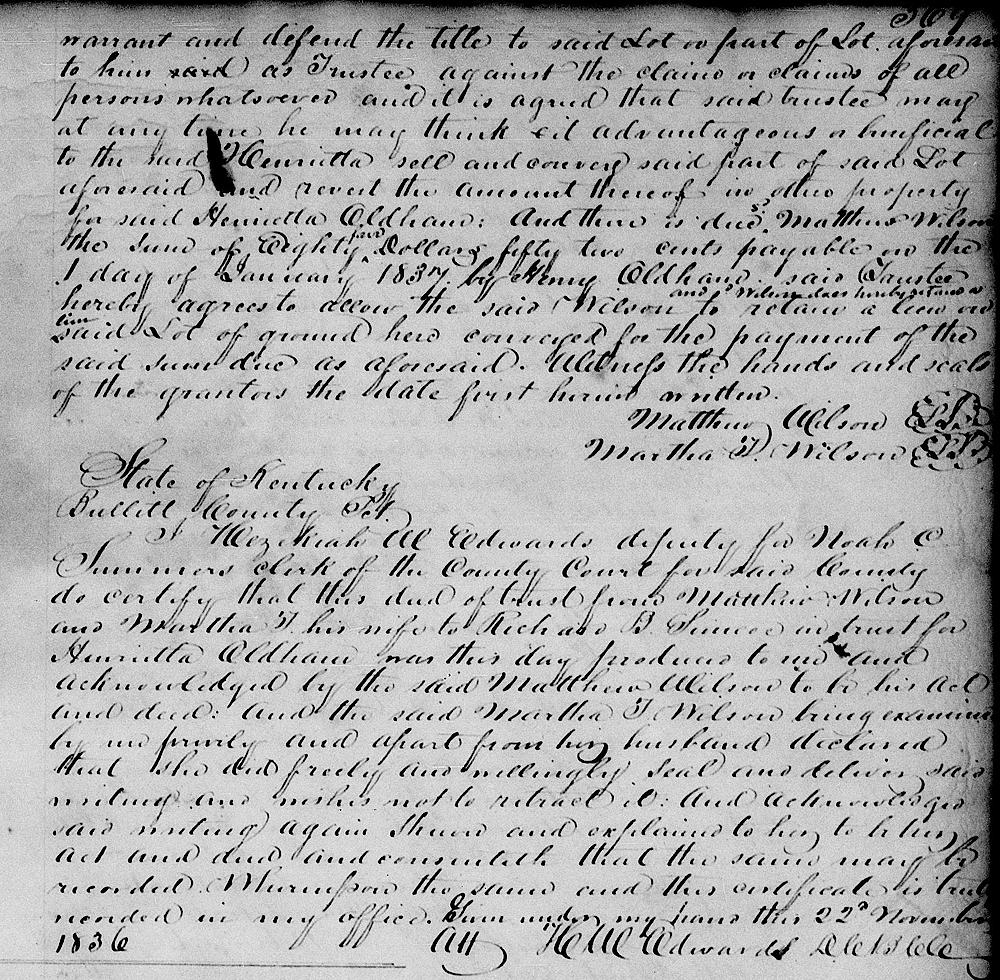 369
warrant and defend the title to said Lot or part of Lot aforesaid
to him said as Trustee against the claim or claims of all
persons whatsoever and it is agreed that said trustee may
at any time he may think it advantageous or benificial
to the said Henrietta sell and convey said part of said Lot
aforesaid and revest the amount thereof in other property
for said Henrietta Oldham: And there is due Matthew Wilson
the sum of Eighty five Dollars fifty two cents payable on the
1 day of January 1837 by Henry Oldham said Trustee
hereby agrees to allow the said Wilson and sd Wilson does hereby retain a lien to retain a lien on
said Lot of ground here conveyed for the payment of the
said sum due as aforesaid. Witness the hands and seals
of the grantors the date first herein written.
Matthew Wilson
Martha T. Wilson
State of Kentucky
Bullitt County Sct.
I Hezekiah M Edwards deputy for Noah C.
Summers clerk of the County Court for said County
do certify that this deed of trust from Matthew Wilson
and Martha T. his wife to Richard B. Simcoe in trust for
Henrietta Oldham was this day produced to me and
acknowledged by the said Matthew Wilson to be his act
and deed: And the said Martha T. Wilson being examined
by me privily and apart from her husband declared
that she did freely and willingly seal and deliver said
writing and wishes not to retract it: And acknowledged
said writing again shewn and explained to her to be her
act and deed and consenteth that the same may be
recorded. Whereupon the same and this certificate is truly
recorded in my office. Given under my hand this 22d November
1836 Att H M Edwards